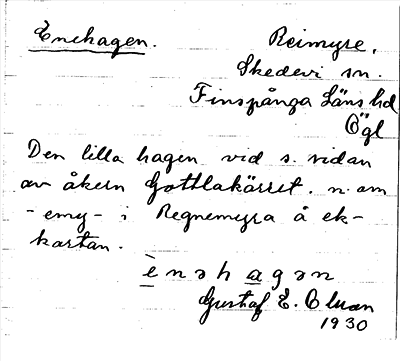 Enehagen. Reimyre,
Skedevi sn.
Finspånga Läns hd
Ögl
Den lilla hagen vid s. sidan
av åkern Gottlakärret. n. om
- emy - i Regnemyra å ek-
kartan.
è n ə h a g ə n
Gustaf E. Cluan
1930